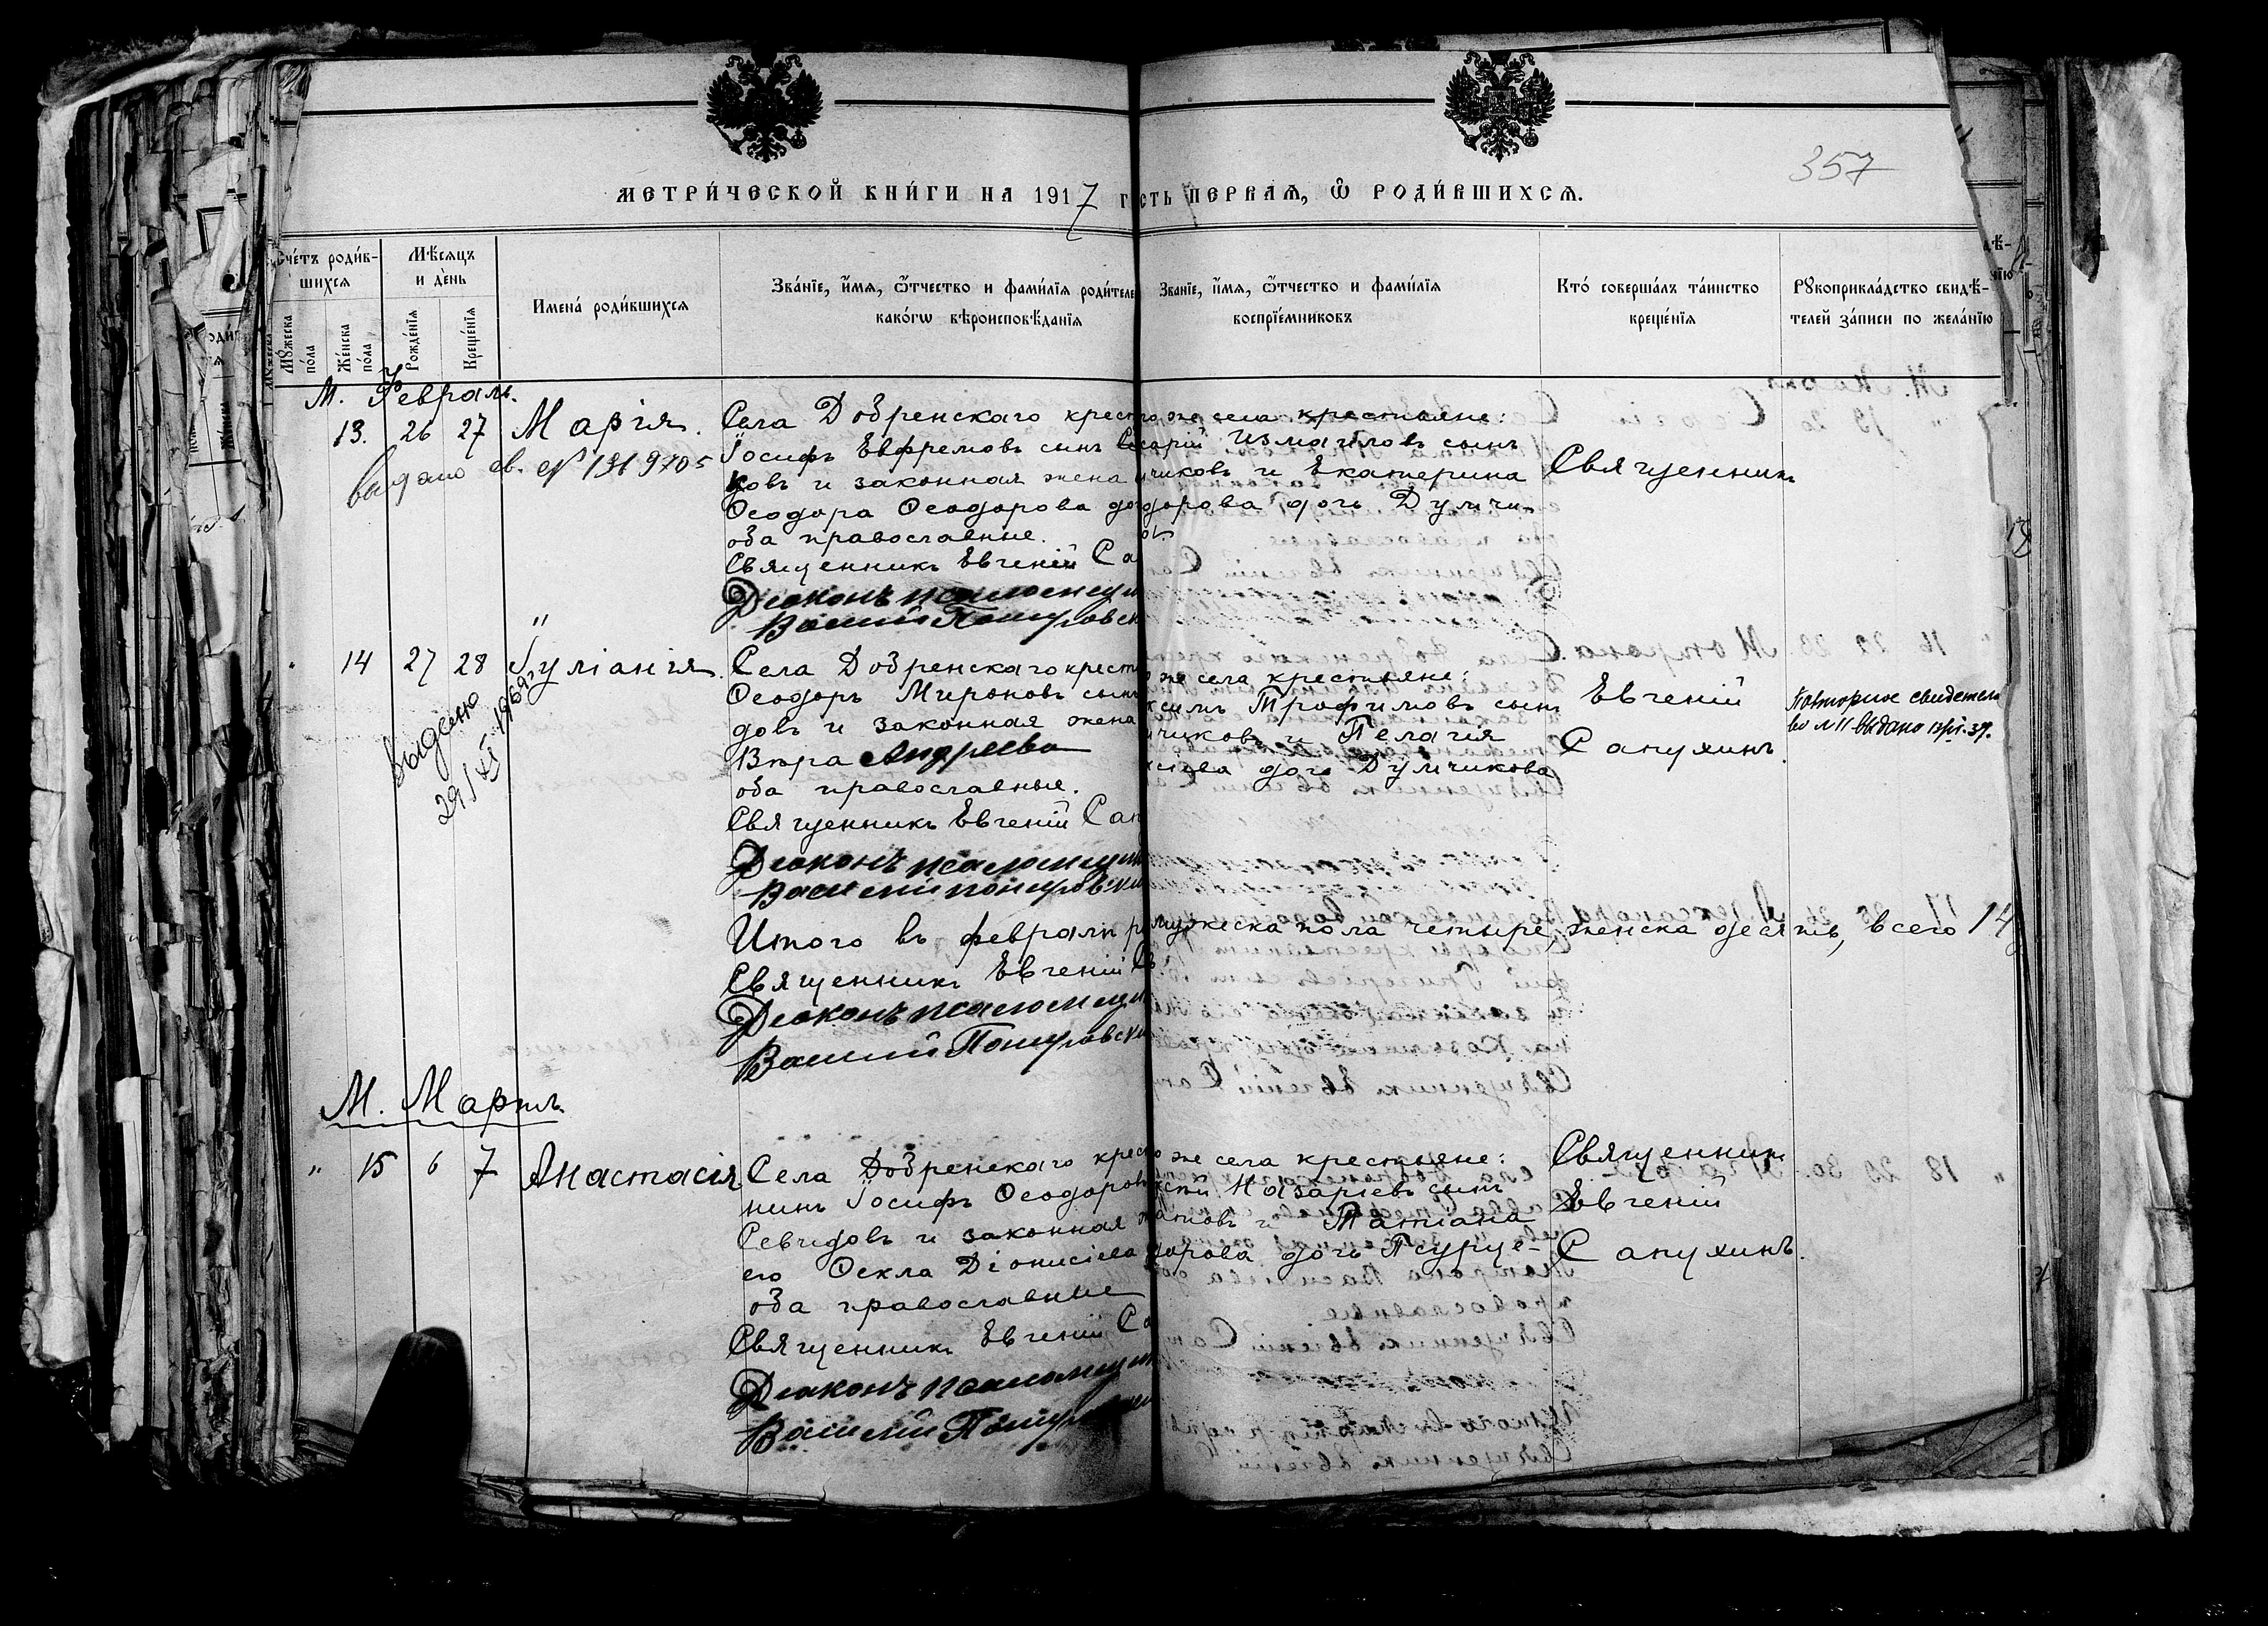 357
МЕТРИ́ЧЕСКОЙ КНИ́ГИ НА 1917 Г
СТЬ ПЕРВАЯ, Ѿ РОДИ́ВШИХСЯ.
Сче́тъ роди́в-
шихся
Мꙋ́жеска по́ла
Же́нска по́ла
Мѣ́сяцъ
и де́нь
Рожде́нїѧ
Креще́нїѧ
Имена́ роди́вшихся
Зва́нїе, и҆́мѧ, ѻ҆́тчество и фами́лїѧ роди́теле
како́гѡ вѣроисповѣ́данїѧ
Зва́нїе, и҆́мѧ, ѻ҆́тчество и фами́лїѧ
воспрїе́мниковъ
Кто́ соверша́лъ та́инство
креще́нїѧ
Рꙋкоприкла́дство свидѣ́-
телей за́писи по жела́нїю
М. Февраль.
13. 26 27 Марія.
выдано св. №
Села Добренскаго крест
Іосифъ Евфремовъ сынъ
довъ и законная жена
Ѳеодора Ѳеодорова до
оба православные.
Священникъ Евгеній Са
Діаконъ псаломщи
Василій
же села крестьяне:
Измаиловъ сынъ
чиковъ и Екатерина
дорова дочь Думчи-
Священникъ
14 27 28 Іуліанія.
выдано
29/XI 1969г
Села Добренскаго крест
Ѳеодоръ Мироновъ сынъ
довъ и законная жена
Вѣра Андреева
оба православные.
Священникъ Евгеній Сап
Діаконъ псаломщи
Василій
же села крестьяне:
ксимъ Трофимовъ сынъ
чиковъ и Пелагія
дочь Думчикова
Евгеній
Сапухинъ.
Повторное свидетель
во № 11 выдано
Итого въ февралѣ р
мужеска пола четыре, женска десять, всего 14
Священникъ Евгеній
Діаконъ псаломщи
Василій
М. Мартъ
" 15 6 7 Анастасія
Села Добренскаго крест
нинъ Іосифъ Ѳеодоровъ
Севчидовъ и законная
его Ѳекла Діонисіева
оба православные
Священникъ Евгеній Са
Діаконъ псаломщи
Василій
же села крестьяне:
Назаріевъ сынъ
и Татіана
дорова дочь
Священникъ
Евгеній
Сапухинъ.